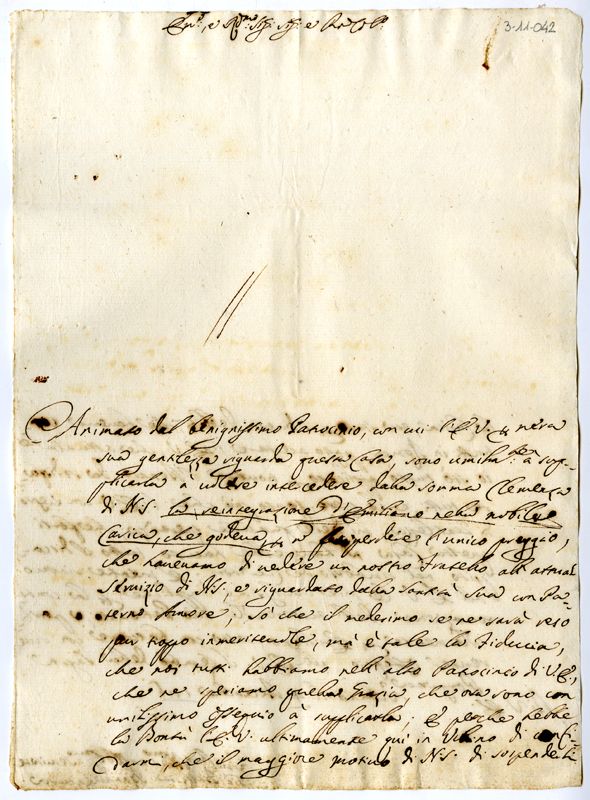 Em.º, e Rmo Sig. Sig. e Pron Col.º
3-11-042
Animato dal benignissimo Patrocinio, con cui l'E.V. per mera
sua gentilezza riguarda questa Casa, sono umilm.te a sup-
plicarla à volere intercedere dalla somma Clemenza
di N.S. la reintegrazione d'Emiliano nella nobile
Carica, che godeva, per n perdere l'unico preggio,
che havevamo di vedere un nostro fratello all'attual
Servizio di N.S., e riguardato dalla Santità sua con Pa-
terno Amore; Sò che il medesimo se ne sarà reso
pur troppo immeritevole, mà è tale la fiducia,
che noi tutti habbiamo nell'alto Patrocinio di V.E.,
che ne speriamo quella Grazia, che ora sono con
umilissimo ossequio à supplicarla; E perche hebbe
la Bontà l'E.V. ultimamente qui in Urbino di confi-
darmi, che il maggiore motivo di N.S. di sospenderli